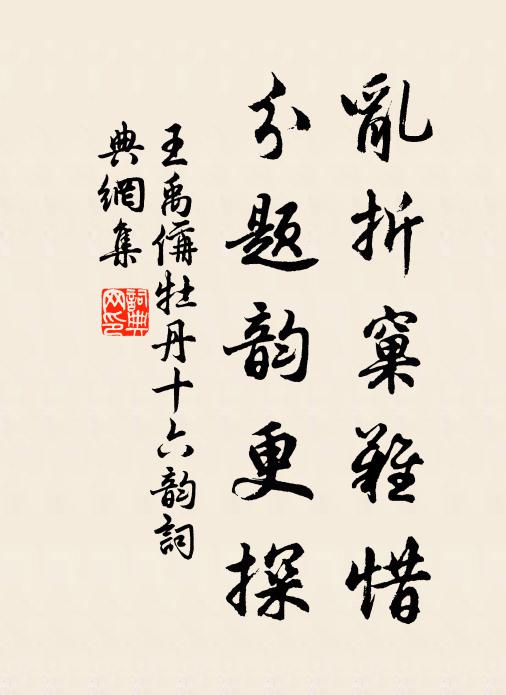 亂折窠難惜
分題韵更探
王禹偁牡丹十六韵詞
典網集
詞典網印